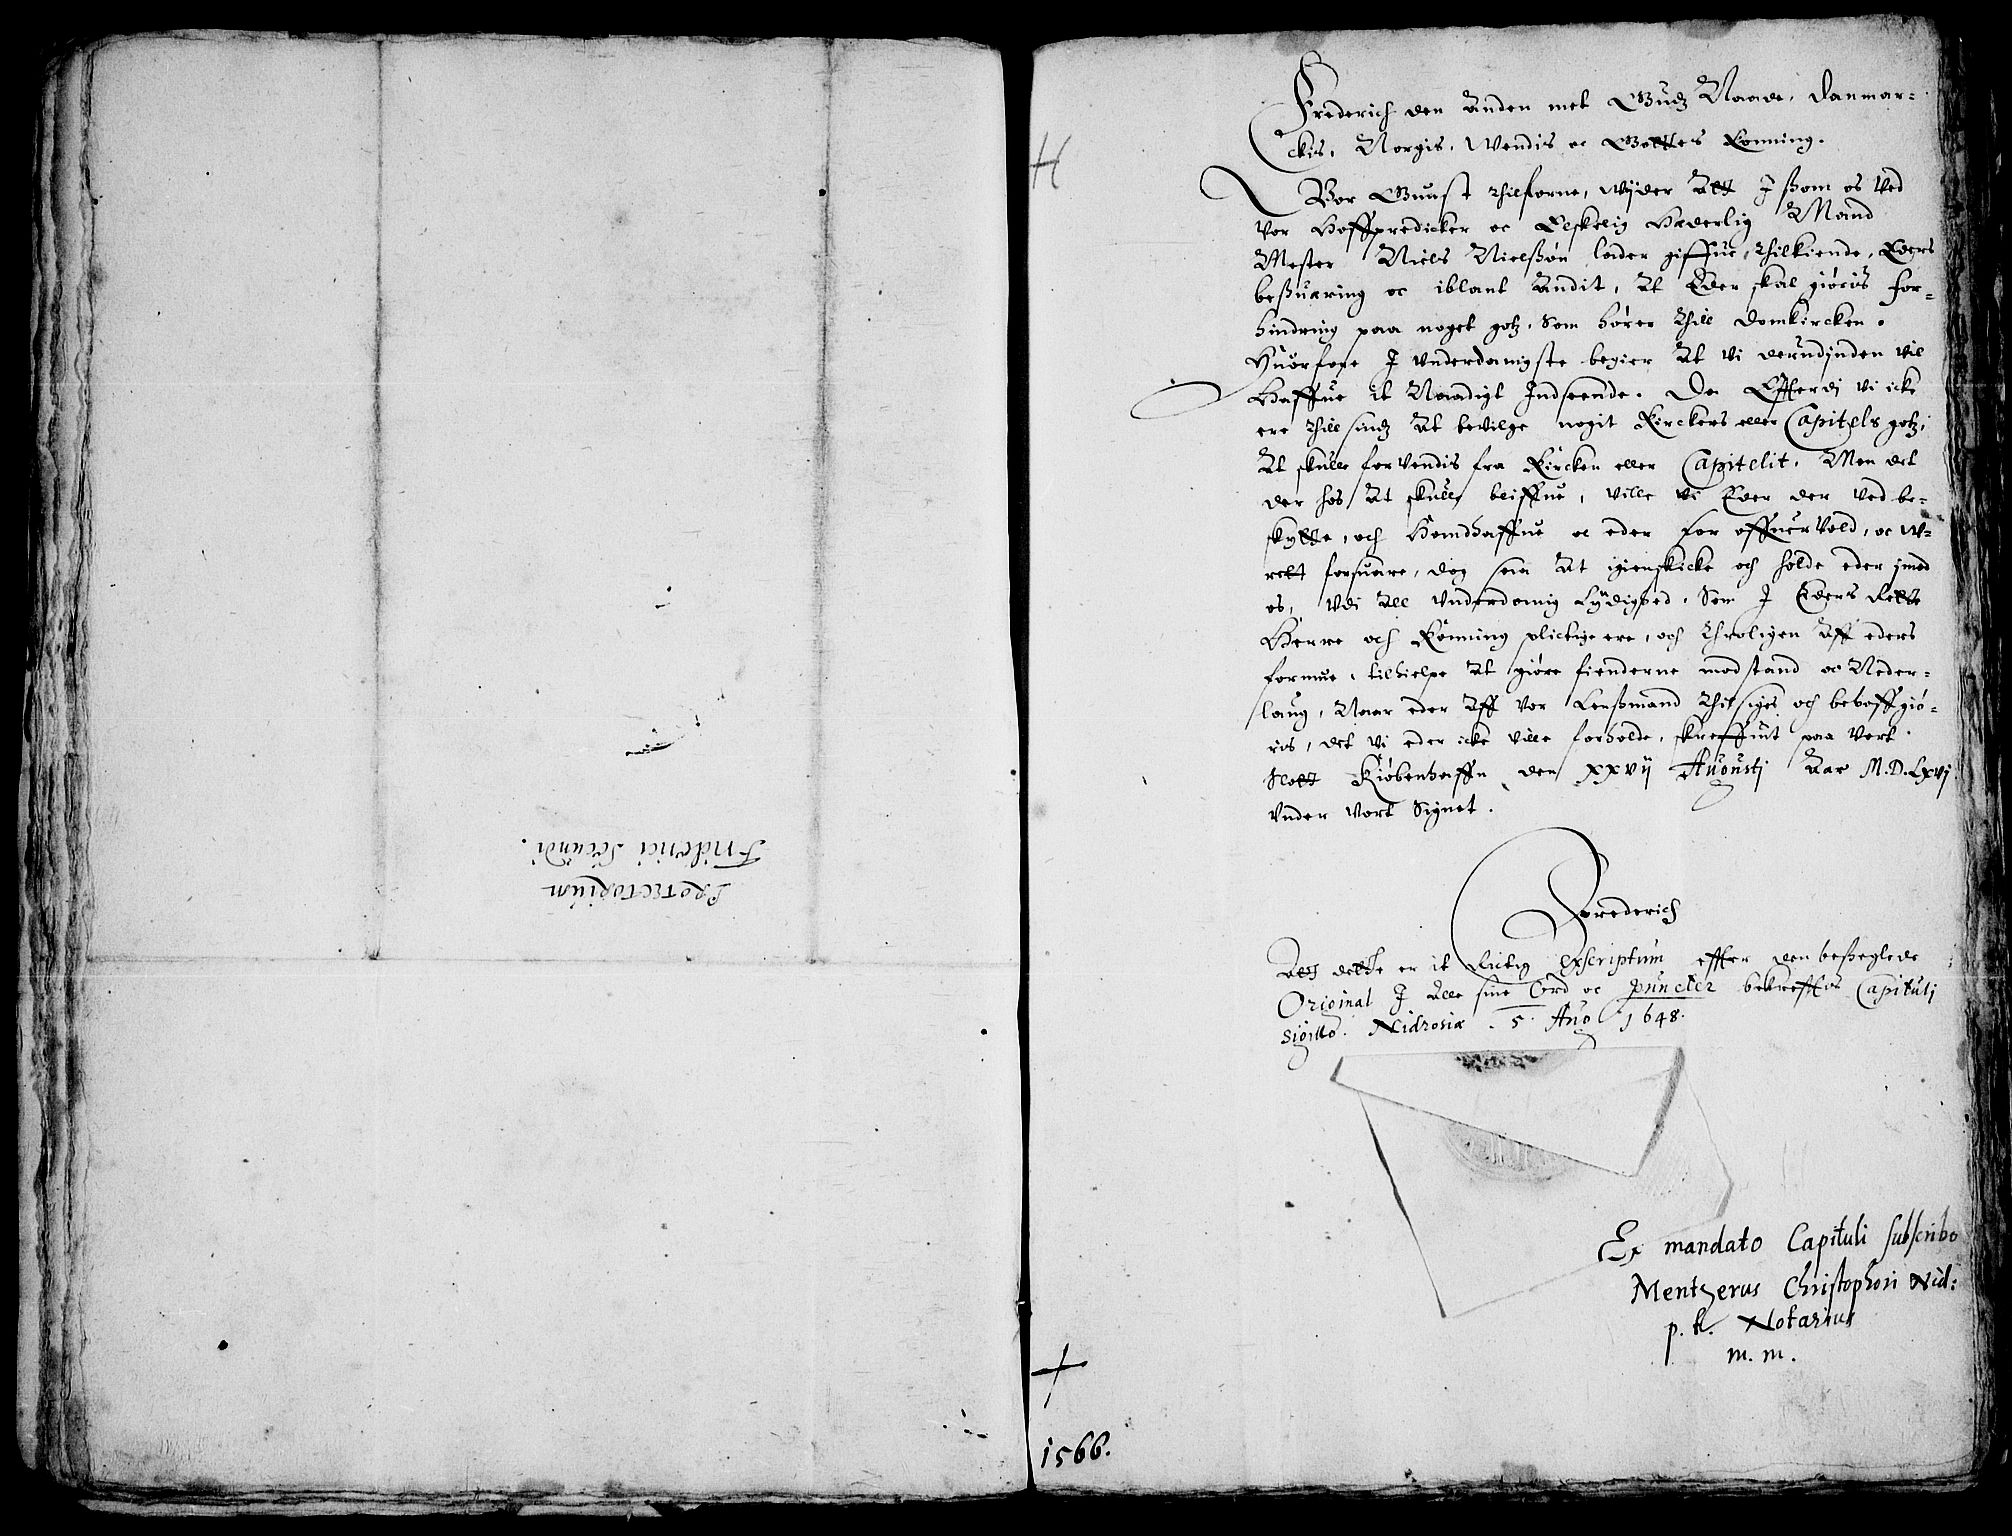 Protectorium
Friderici Secundi.
H
Frederich den Anden met Gudz Naade, Danmar=
ckis, Norgis, Wendis oc Gottes Konning.
Vor Gunst thilforne, wijder Att I ßom os ved
vor Hoffpredicker oc Elskelig Hæderlig Mand
Mester Niels Nielßøn lader giffue thilkiende, Eders
beßuæring oc iblant Andit, At Eder skal giøris for=
hindring paa noget gotz, Som hører thill Domkircken.
Huorfore I vnderdanigste begier At vi derudjnden vil
Haffue it Naadigt Indseende. Da Effterdj vi icke
ere thill sindz At bevilge nogit Kirckers eller Capitels gotz,
At skulle forvendis fra Kircken eller Capitelit, Men det
der hos At skulle bliffue, ville vi Eder der ved be=
skytte, och Handhaffue oc eder for offueruold, oc w=
rett forsuare, dog saa At igienskicke och holde eder jmod
os, vdi All vnderdanig Lydighed, Som I Eders Rette
Herre och Konning plictige ere, och throligen Aff eders
formue, tilhielpe At giøre fienderne modstand oc Neder=
laug, Naar eder Aff vor Lenßmand thilsiges och behoff giø=
ris, det vi eder icke ville forholde, skreffuit paa vort
Slott Kiøbenhaffn den xxvij Augustj Aar M.D.Lxvj
vnder vort Signet.
Frederich
Att dette er it Rictig exscriptum effter den beßeglede
Original I Alle sine Ord oc puncter bekrefftes Capitulj
sigillo. Nidrosiæ. 5. Aug 1648.
Ex mandato Capituli subscribo
Mentzerus Christophori Nid:
p. t. Notarius
m. m.
1566.